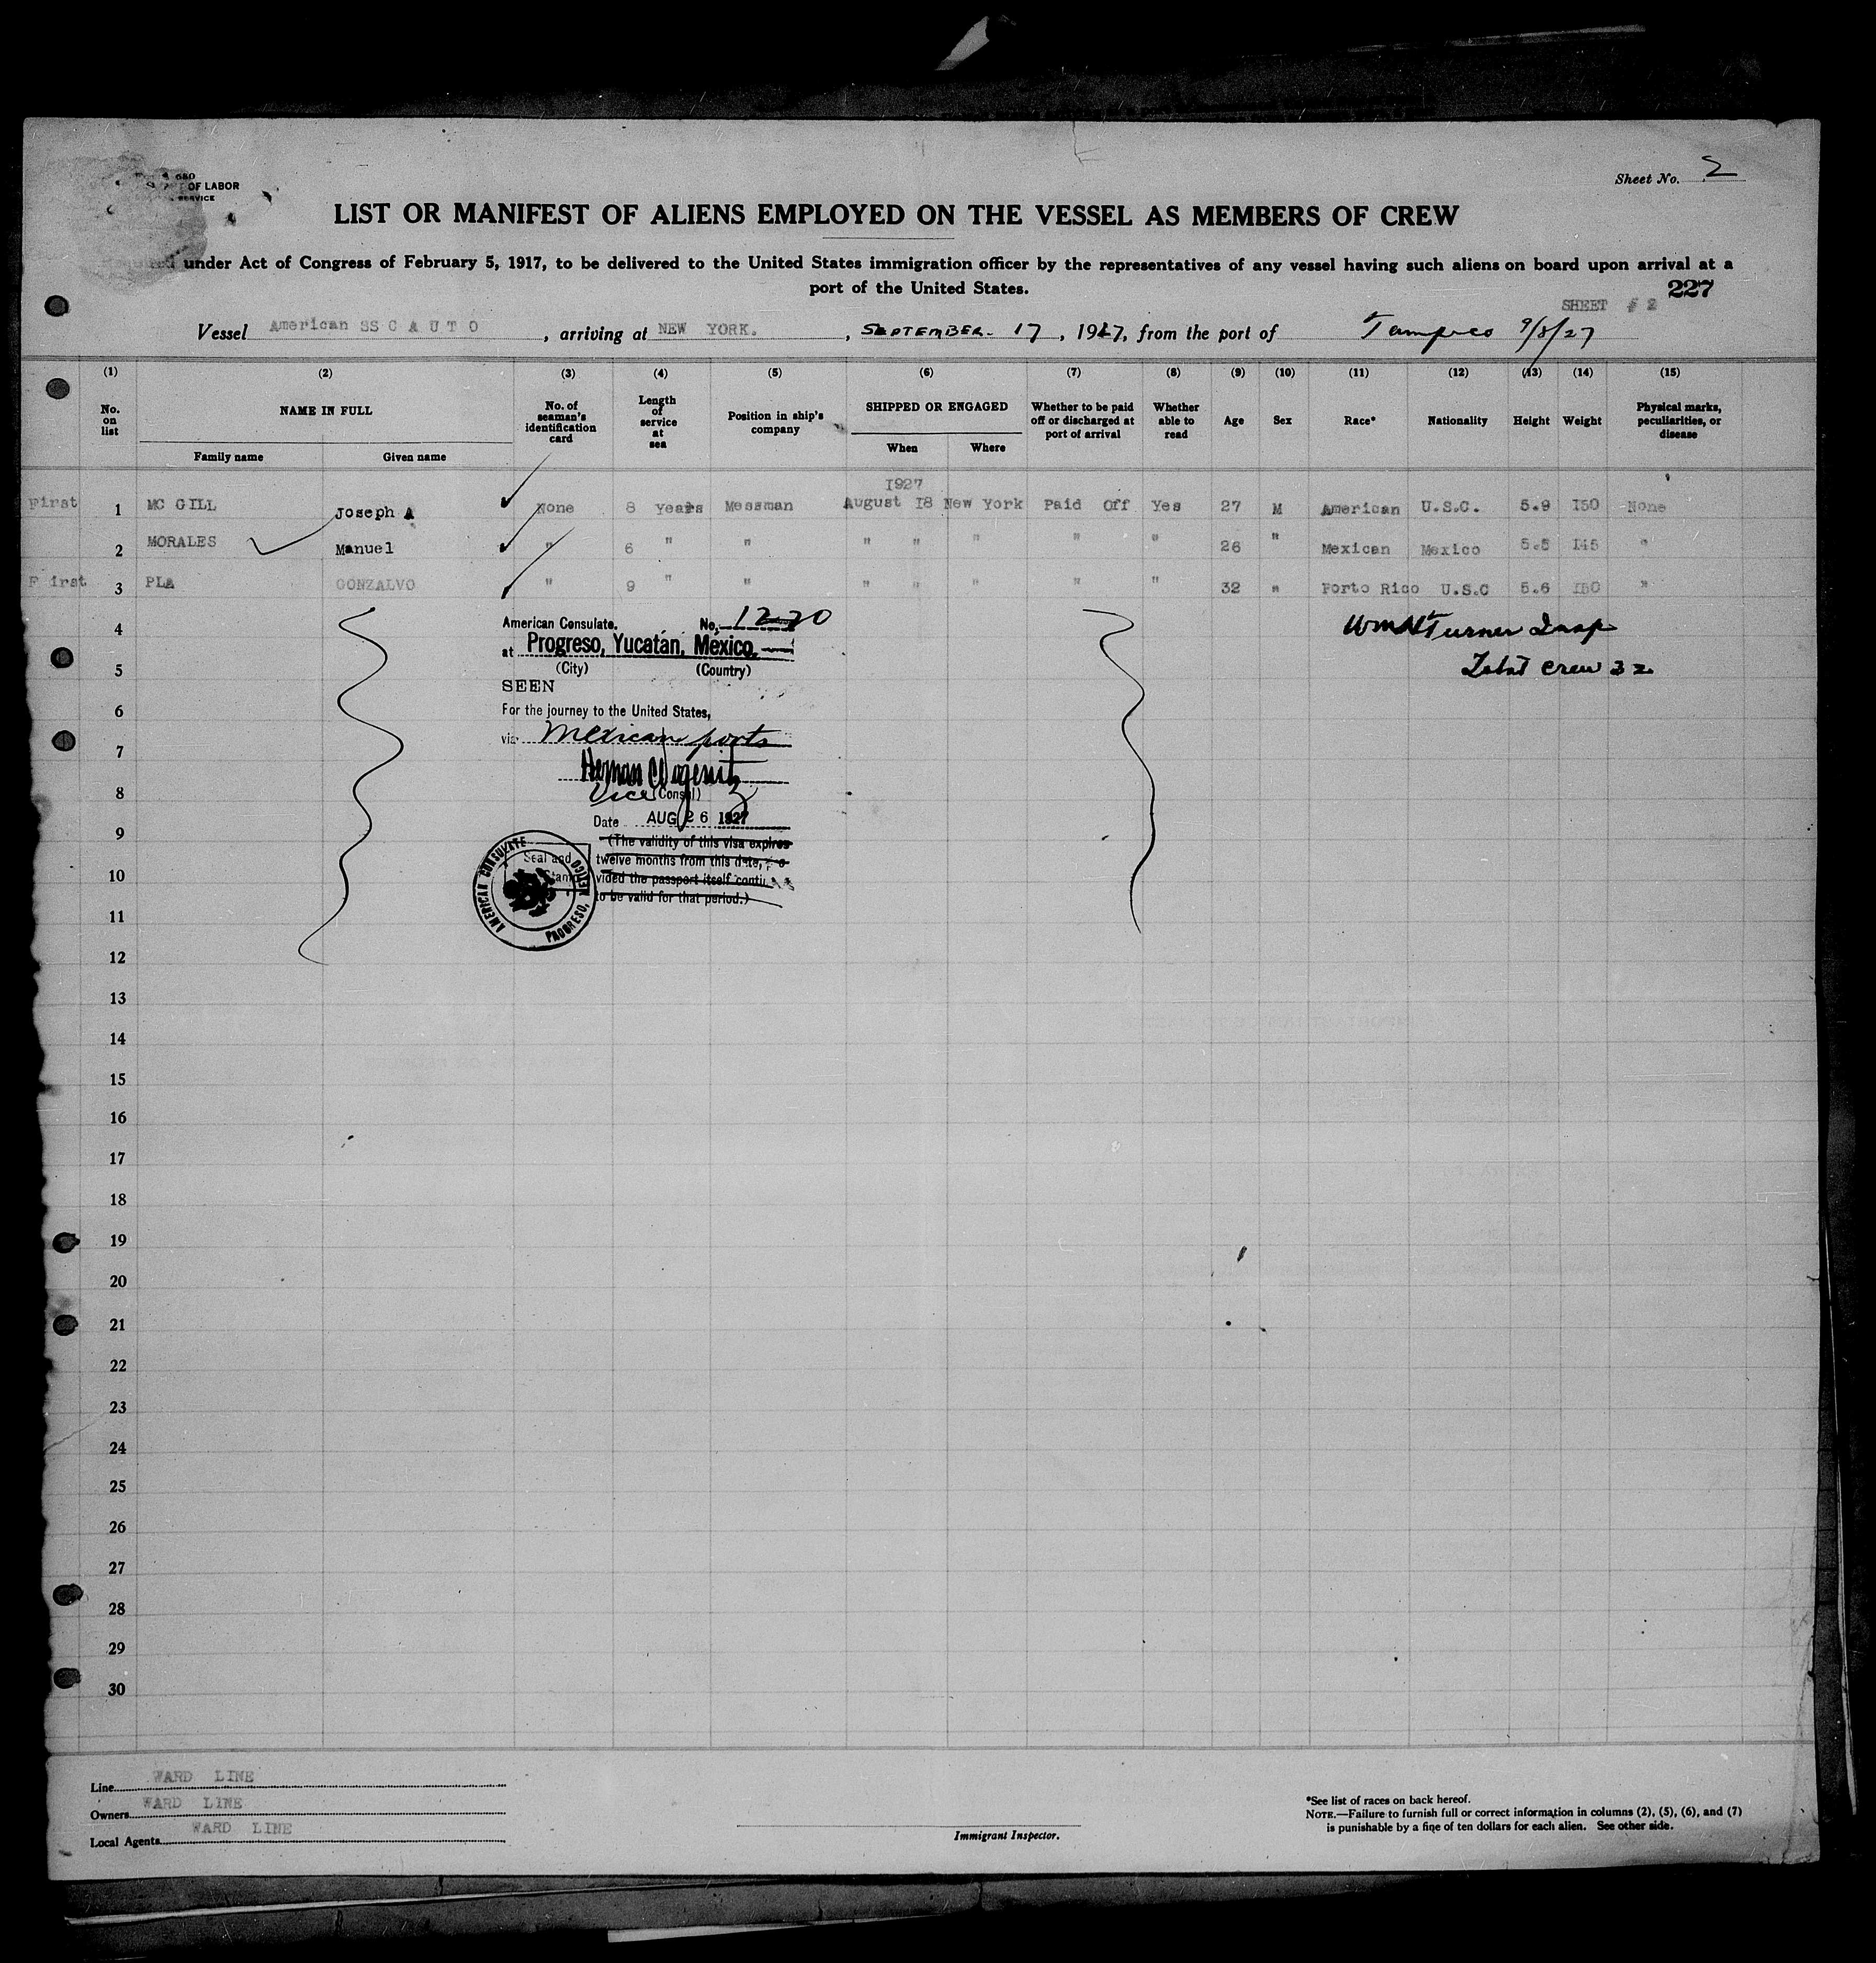 680
OF LABOR
SERVICE
Sheet No. 2
LIST OR MANIFEST OF ALIENS EMPLOYED ON THE VESSEL AS MEMBERS OF CREW
under Act of Congress of February 5, 1917, to be delivered to the United States immigration officer by the representatives of any vessel having such aliens on board upon arrival at a
port of the United States.
227
SHEET # 2
Vessel American SS C A U T O , arriving at NEW YORK. , SEPTEMBER- 17 , 1927, from the port of Tampico 9/8/27
(1) (2) (3) (4) (5) (6) (7) (8) (9) (10) (11) (12) (13) (14) (15)
No. on list NAME IN FULL Family name Given name No. of seaman's identification card Length of service at sea Position in ship's company SHIPPED OR ENGAGED When Where Whether to be paid off or discharged at port of arrival Whether able to read Age Sex Race* Nationality Height Weight Physical marks, peculiarities, or disease
1927
First 1 MC GILL Joseph A None 8 Years Messman August 18 New York Paid Off Yes 27 M American U.S.C. 5.9 150 None
2 MORALES Manuel " 6 " " " " " " " 26 " Mexican Mexico 5.5 145 "
First 3 PLA GONZALVO " 9 " " " " " " " 32 " Porto Rico U.S.C 5.6 150 "
4
5
6
7
8
9
10
11
12
13
14
15
16
17
18
19
20
21
22
23
24
25
26
27
28
29
30
American Consulate. No. 1220
at Progreso, Yucatán, Mexico.
(City) (Country)
SEEN
For the journey to the United States,
via Mexican ports
Vice (Consul)
Date AUG 26 1927
(The validity of this visa expires
twelve months from this date, pro
vided the passport itself continues
to be valid for that period.)
Seal and
Stamp
AMERICAN CONSULATE
PROGRESO, MEXICO
Wm H Turner Insp
Total crew 32
Line WARD LINE
Owners WARD LINE
Local Agents WARD LINE
Immigrant Inspector.
*See list of races on back hereof.
NOTE.—Failure to furnish full or correct information in columns (2), (5), (6), and (7)
is punishable by a fine of ten dollars for each alien. See other side.